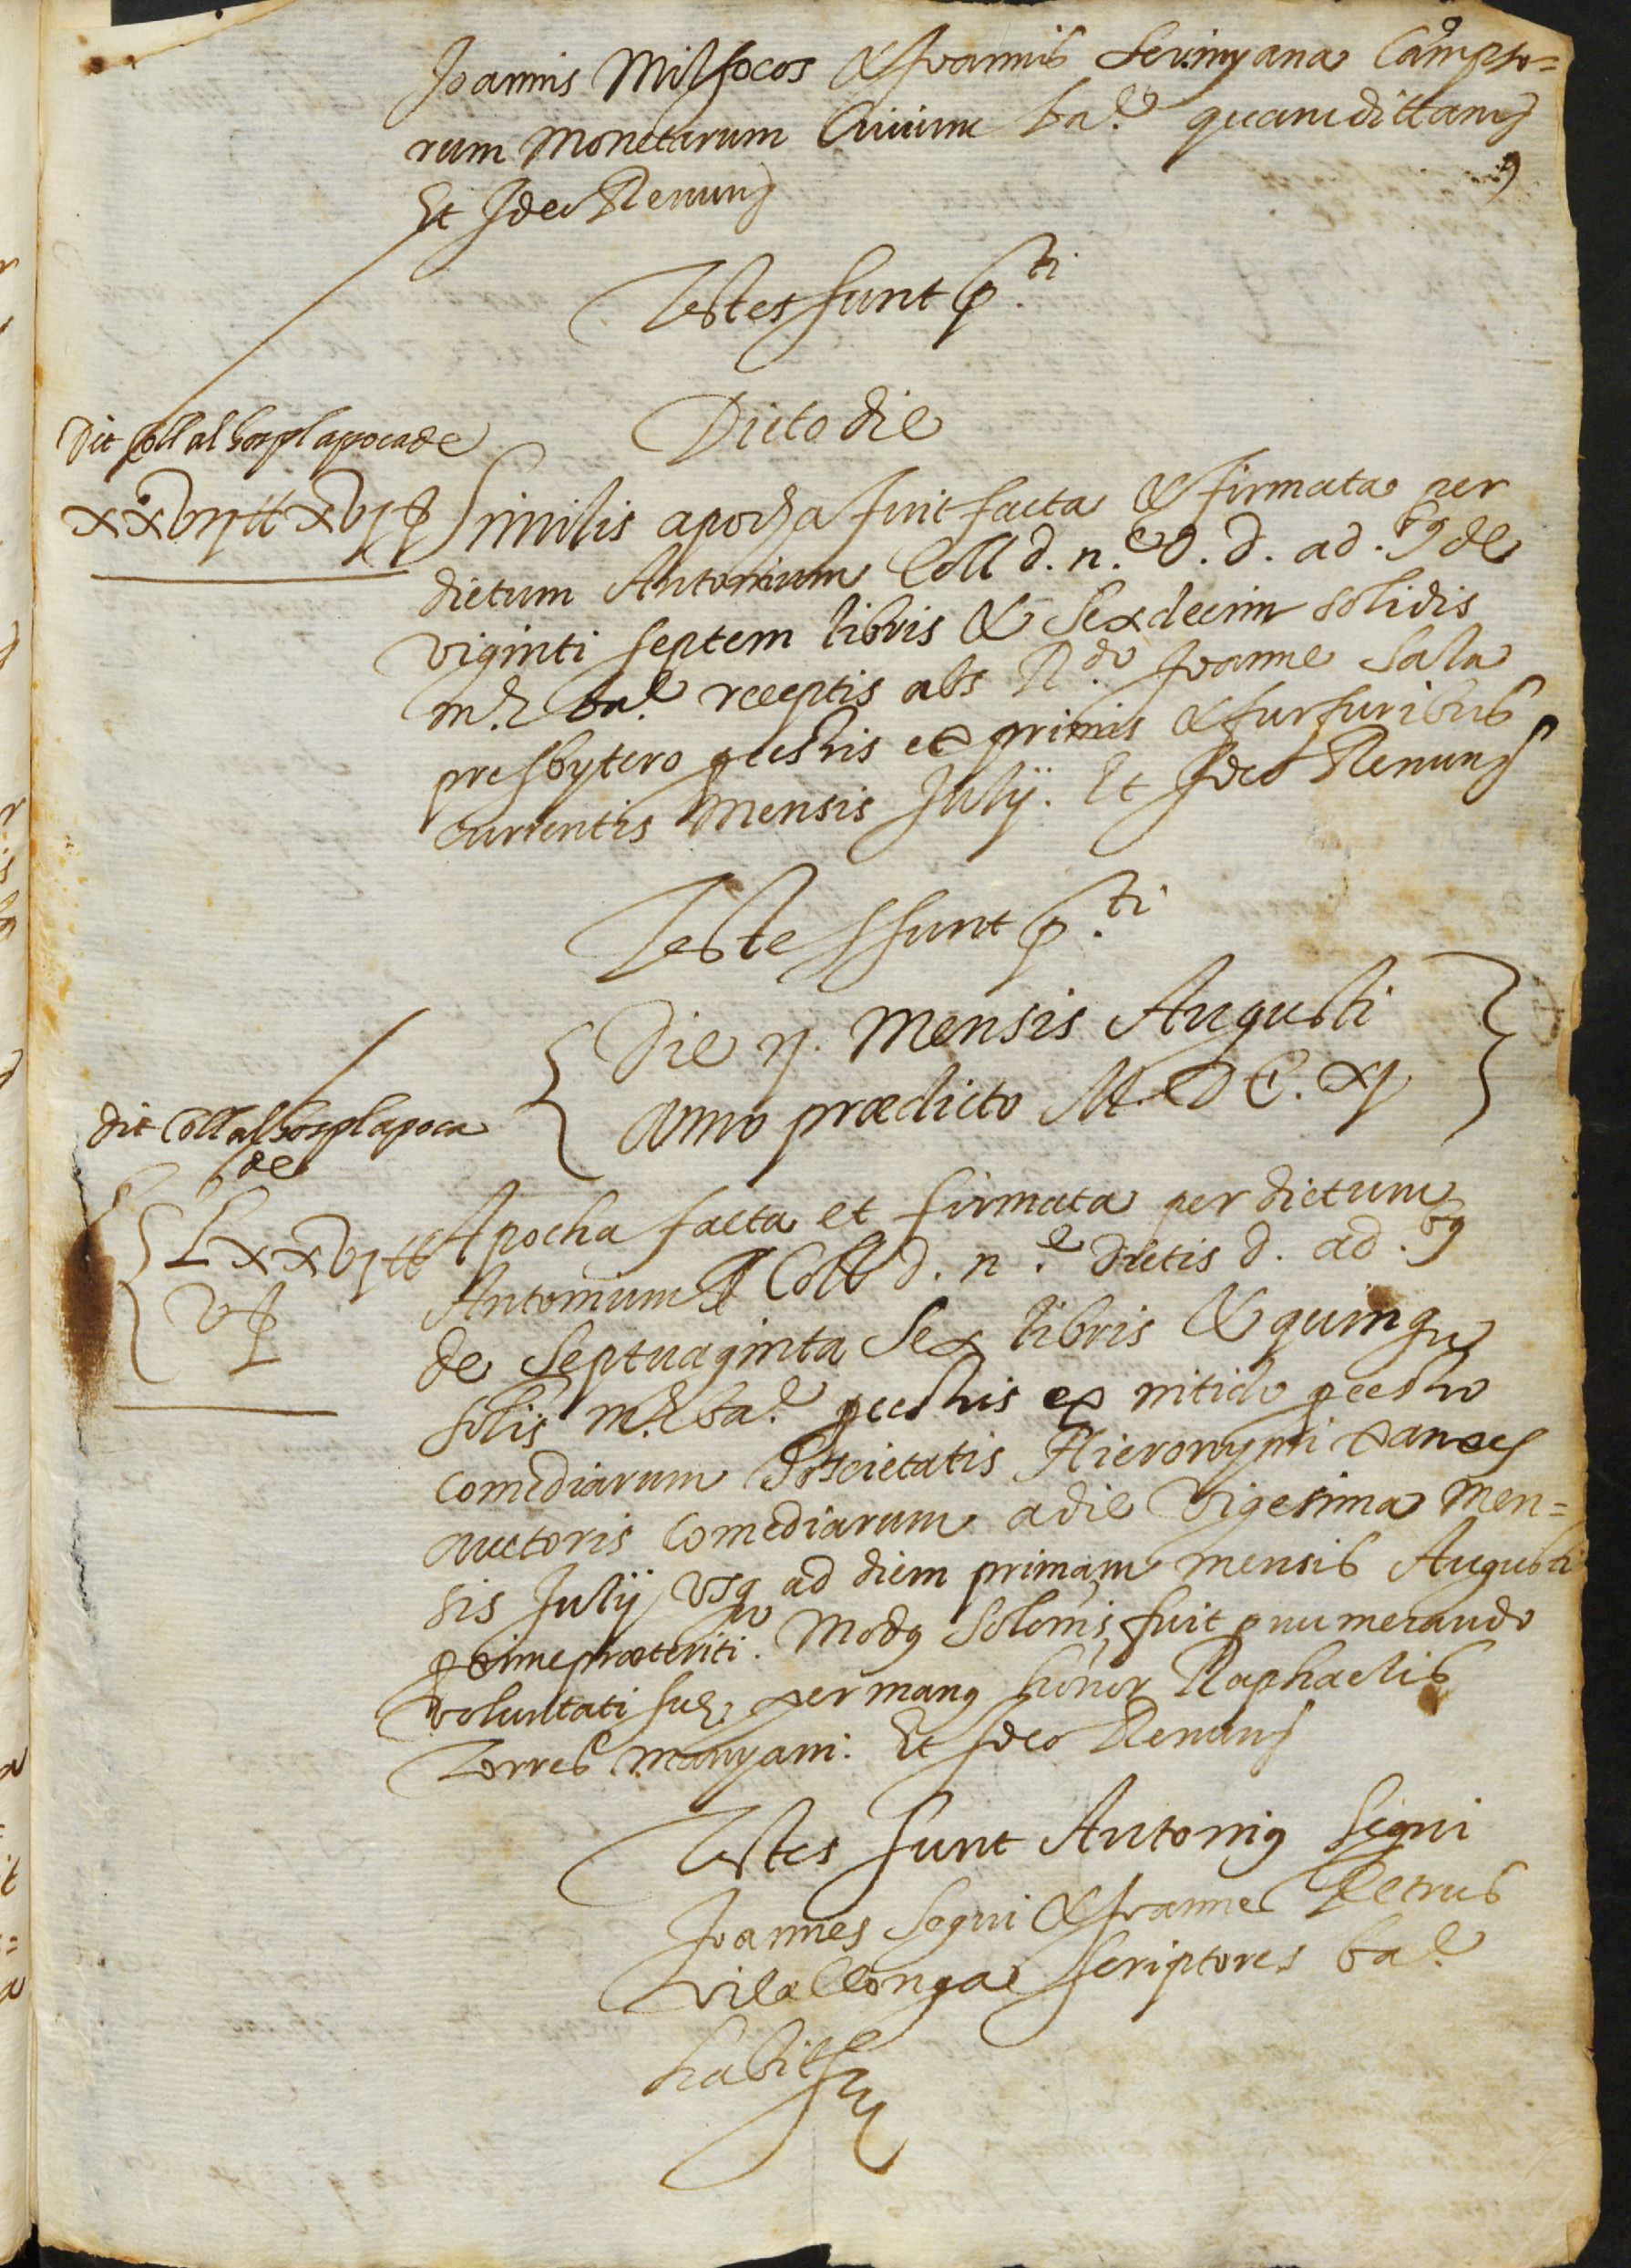 Joannis Milfocos & Joannis Serinyana Campso=
rum Monetarum Civium ba.e quam dittam
Et Ideo Renunẽ
Testes sunt p.ti
Dicto die
Dit Coll al hospl apoca de
xxvij ll xvj s
Similis apocha fuit facta & firmata per
dictum Antonium Coll d. n.e d. d. ad. bꝯ de
viginti septem libris & sexdecim solidis
m.e ba.e receptis abs R.do Joanne Sala
presbytero questris ex primis & furfuribus
currentis Mensis Julij. Et Ideo Renunẽ
Testes sunt p.ti
Die ij. Mensis Augusti
anno prædicto M.DC.xj
Dit Coll al hospl apoca
de
Lxxvj ll
v s
Apocha facta et firmata per dictum
Antonium Coll d. n.e dictis d. ad. bꝯ
de Septuaginta Sex libris & quinque
solis m.e ba.e questris ex nitido questro
comediarum Societatis Hieronymi
auctoris comediarum a die Vigesima Men=
sis Julij usq ad diem primam mensis Augusti
proxime præteriti. Modꝯ solonis fuit numerando
voluntati suæ, per manꝯ honor Raphaelis
Torres Manyani. Et Ideo Renunẽ
Testes sunt Antoniꝯ Segui
Joannes Segui & Joannes Petrus
Vilallonga scriptores ba.e
habit